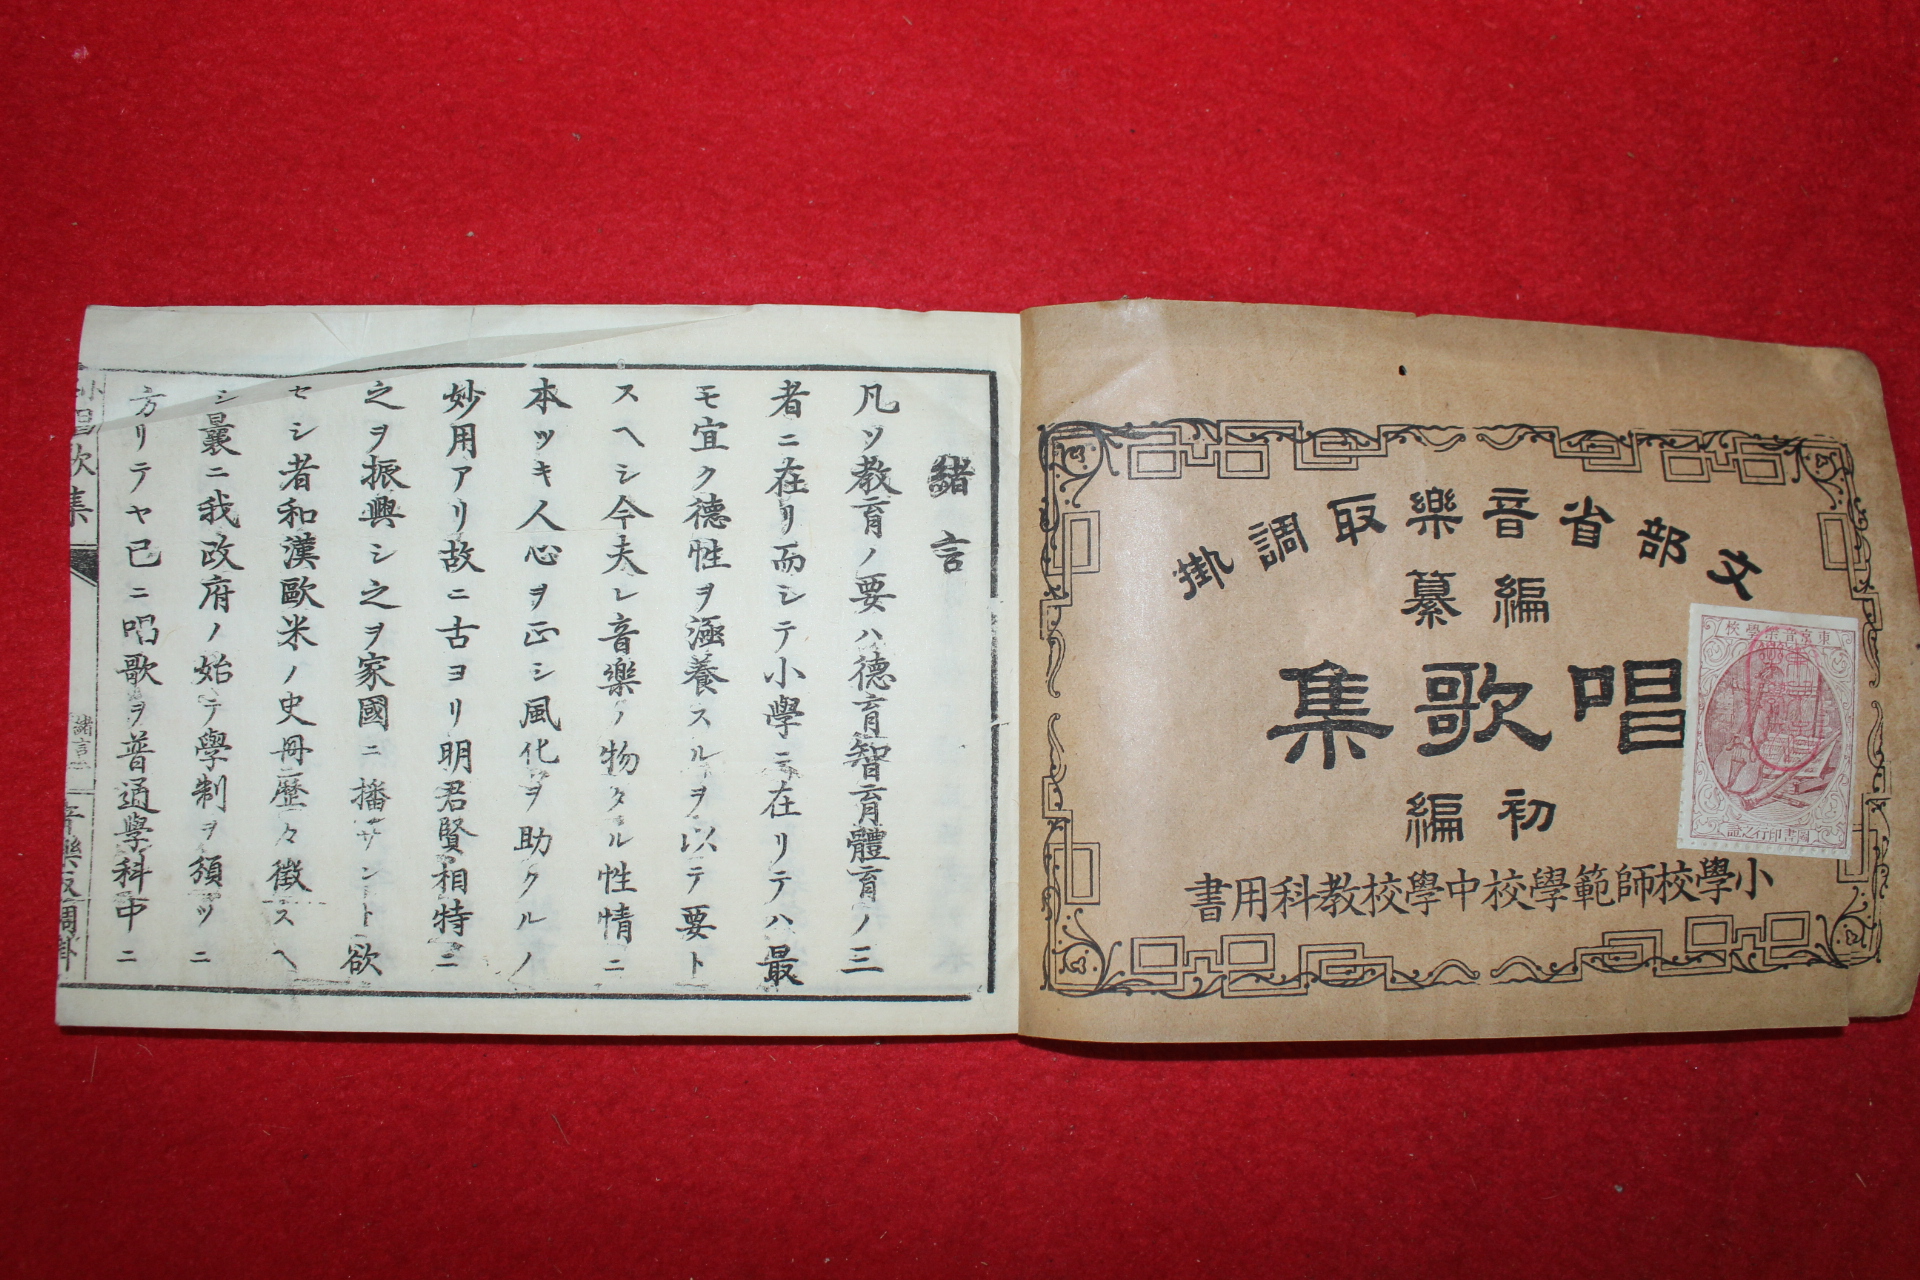 文部省音樂取調掛
編纂
唱歌集
初編
小學校師範學校中學校教科用書
東京音樂學校
圖書印行之證
緒言
凡ソ教育ノ要ハ德育智育體育ノ三
者ニ在リ而シテ小學ニ在リテハ最
モ宜ク德性ヲ涵養スルヲ以テ要ト
スヘシ今夫レ音樂ノ物タル性情ニ
本ツキ人心ヲ正シ風化ヲ助クルノ
妙用アリ故ニ古ヨリ明君賢相特ニ
之ヲ振興シ之ヲ家國ニ播サント欲
セシ者和漢歐米ノ史冊歷々徵スヘ
シ曩ニ我政府ノ始テ學制ヲ頒ツニ
方リテヤ已ニ唱歌ヲ普通學科中ニ
唱歌集
緒言
音樂取調掛